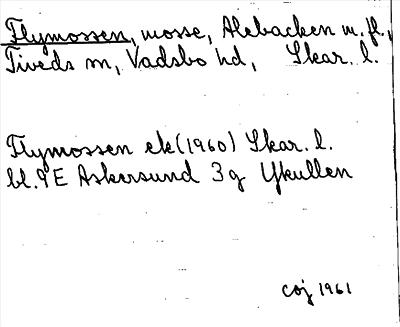 Flymossen, mosse, Alebacken m. fl.,
Tiveds sn, Vadsbo hd, Skar. l.
Flymossen ek (1960) Skar. l.
bl. 9E Askersund 3g Ykullen
coj 1961